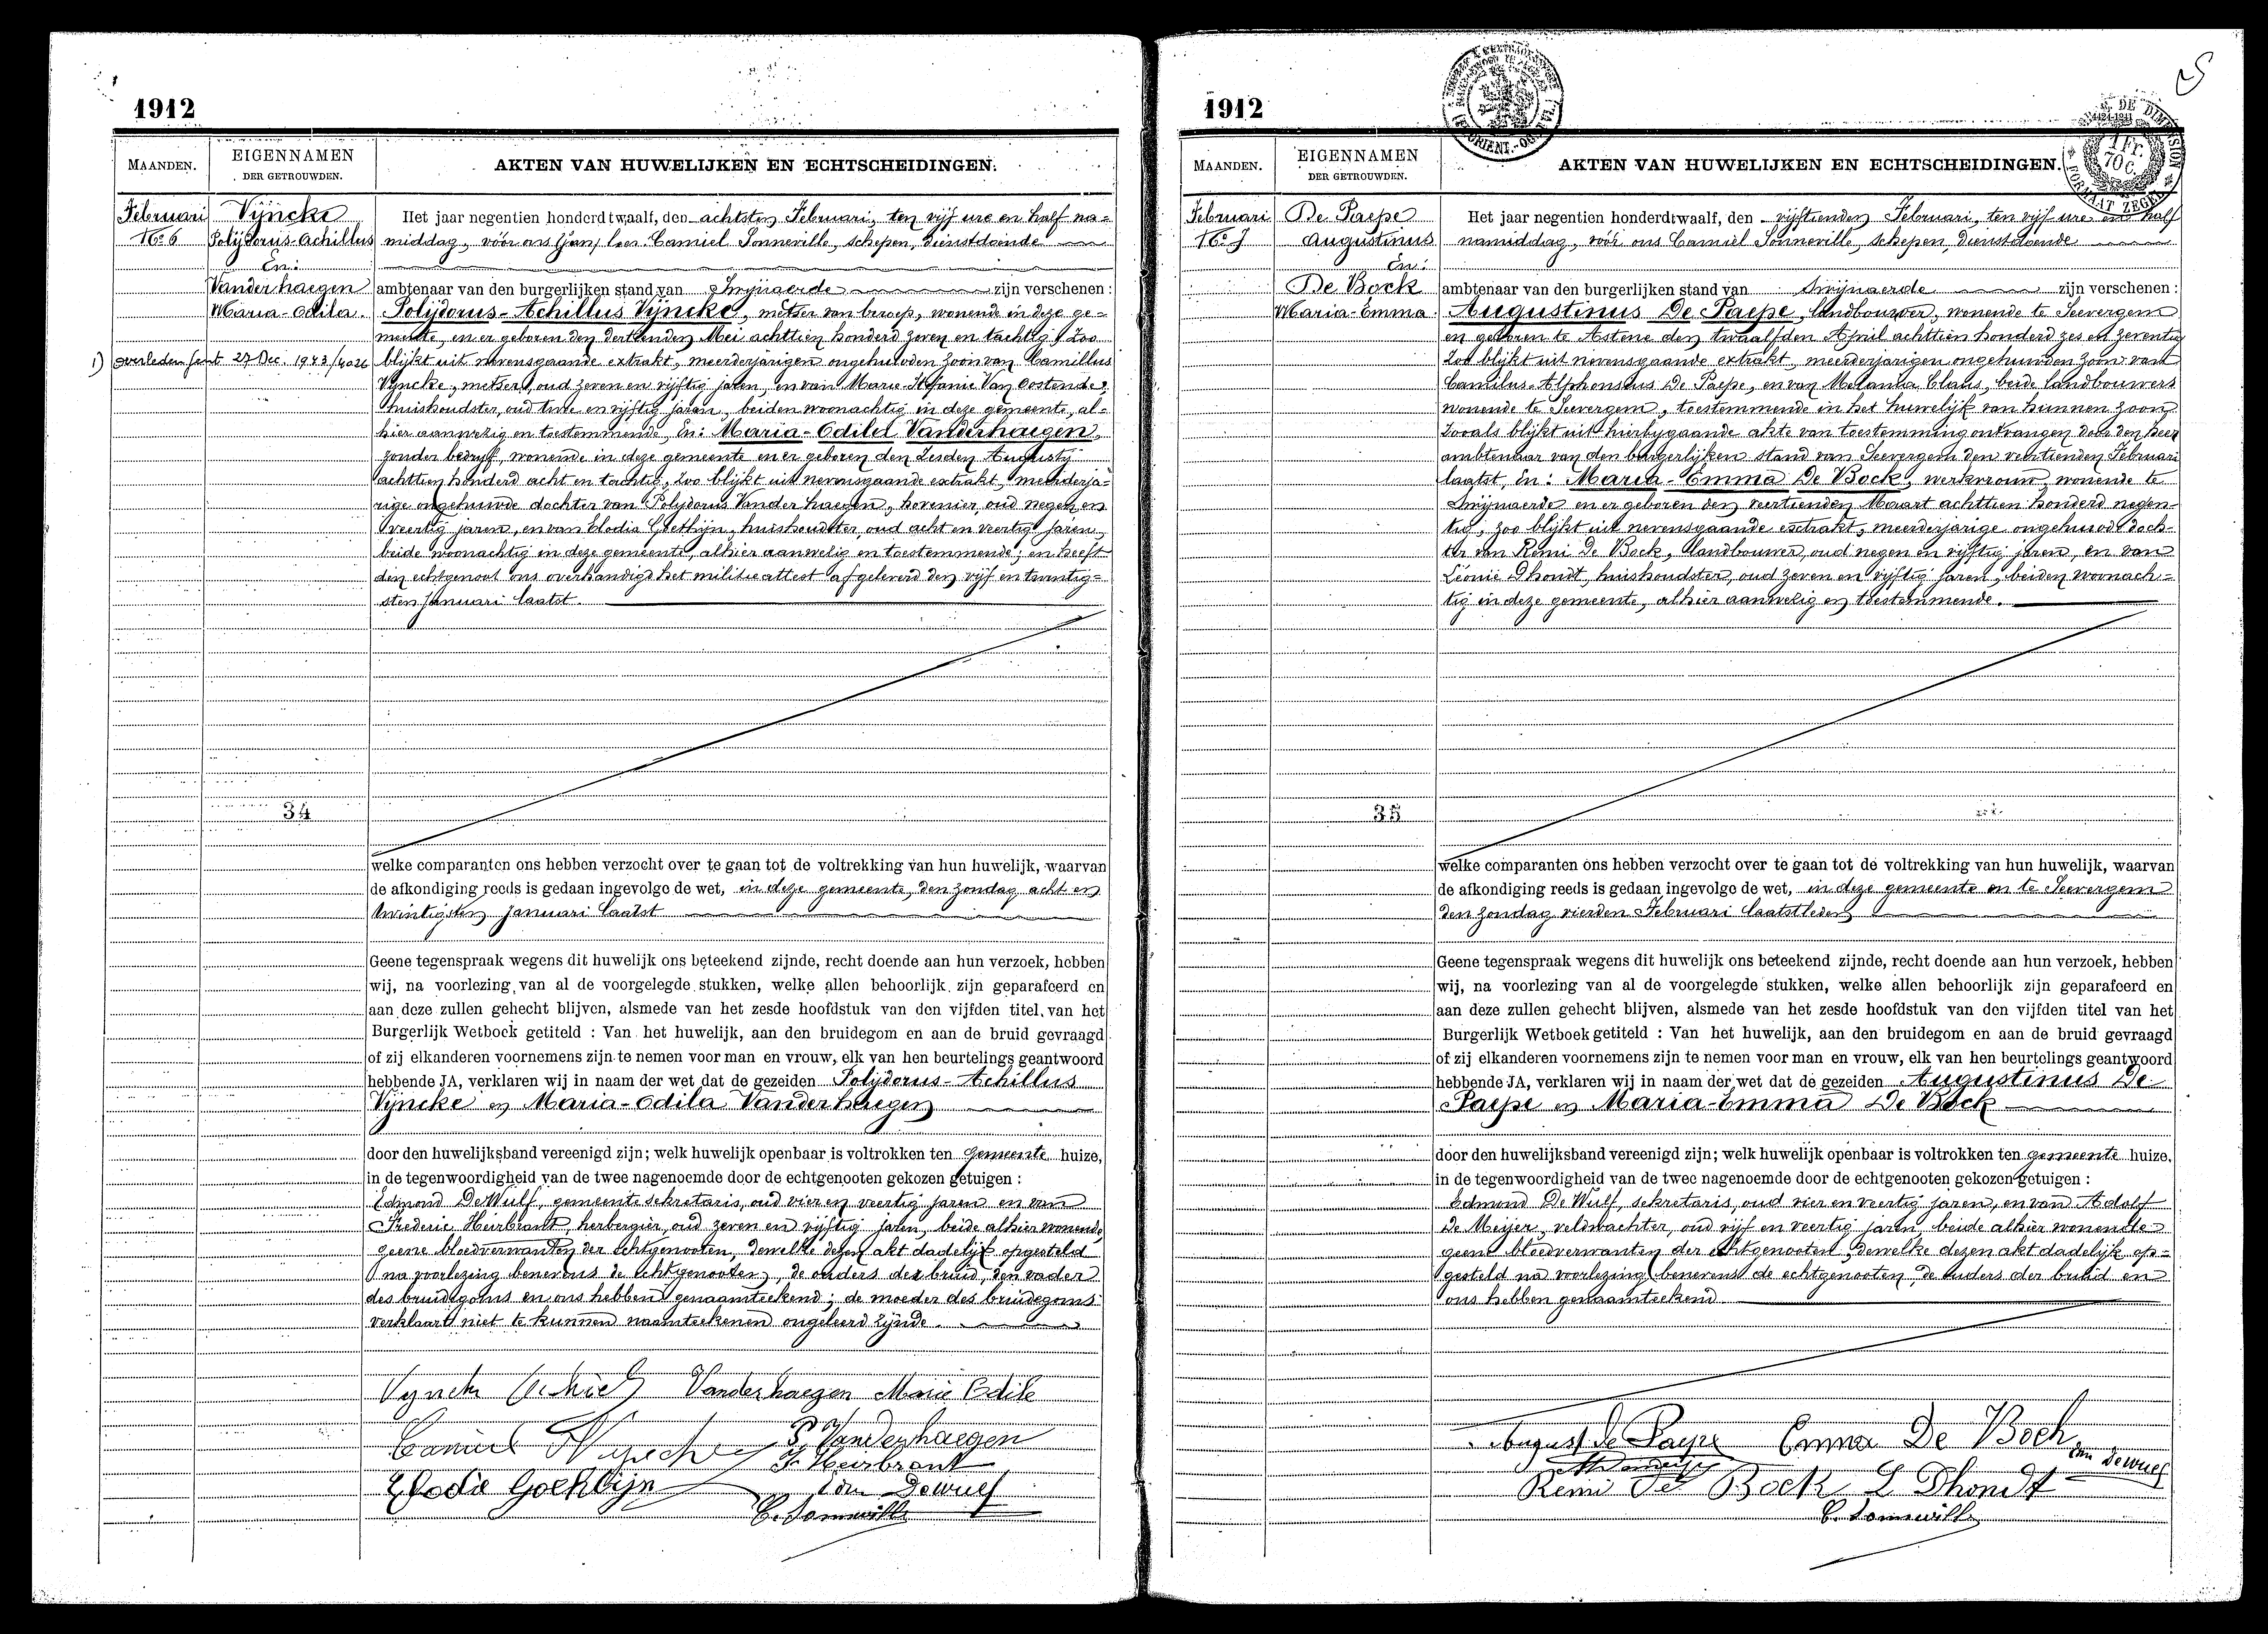 1912
MAANDEN.
EIGENNAMEN
DER GETROUWDEN.
AKTEN VAN HUWELIJKEN EN ECHTSCHEIDINGEN.
Februari
No 6
Vijncke
Polijdorus-Achillus
En:
Vanderhaegen
Maria-Odila.
1) overleden Gent 27 Dec. 1943/4026
Het jaar negentien honderd twaalf, den achtsten Februari, ten vijf ure en half na=
middag, vóór ons Camiel Sonneville, schepen, dienstdoende
ambtenaar van den burgerlijken stand van Swijnaerde zijn verschenen :
Polijdorus-Achillus Vijncke, metser van beroep, wonende in deze ge=
meente, en er geboren den dertienden Mei achttien honderd zeven en tachtig, Zoo
blijkt uit nevensgaande extrakt, meerderjarigen ongehuwden zoon van Camillus
Vijncke, metser, oud zeven en vijftig jaren, en van Marie-Stefanie Van Oostende,
huishoudster, oud twee en vijftig jaren, beiden woonachtig in deze gemeente, al=
hier aanwezig en toestemmende, En: Maria-Odila Vanderhaegen,
zonder bedrijf, wonende in deze gemeente en er geboren den zesden Augusty
achttien honderd acht en tachtig, Zoo blijkt uit nevensgaande extrakt, meerderja=
rige ongehuwde dochter van Polijdorus Vanderhaegen, hovenier, oud negen en
veertig jaren, en van Elodia Goethijn, huishoudster, oud acht en veertig jaren,
beide woonachtig in deze gemeente, alhier aanwezig en toestemmende; en heeft
den echtgenoot ons overhandigd het militie attest afgeleverd den vijf en twintig=
sten Januari laatst.
34
welke comparanten ons hebben verzocht over te gaan tot de voltrekking van hun huwelijk, waarvan
de afkondiging reeds is gedaan ingevolge de wet, in deze gemeente, den zondag acht en
twintigsten Januari laatst
Geene tegenspraak wegens dit huwelijk ons beteekend zijnde, recht doende aan hun verzoek, hebben
wij, na voorlezing van al de voorgelegde stukken, welke allen behoorlijk zijn geparafeerd en
aan deze zullen gehecht blijven, alsmede van het zesde hoofdstuk van den vijfden titel van het
Burgerlijk Wetboek getiteld : Van het huwelijk, aan den bruidegom en aan de bruid gevraagd
of zij elkanderen voornemens zijn te nemen voor man en vrouw, elk van hen beurtelings geantwoord
hebbende JA, verklaren wij in naam der wet dat de gezeiden Polijdorus-Achillus
Vijncke en Maria-Odila Vanderhaegen
door den huwelijksband vereenigd zijn; welk huwelijk openbaar is voltrokken ten gemeente huize,
in de tegenwoordigheid van de twee nagenoemde door de echtgenooten gekozen getuigen :
Edmond De Wulf, gemeente sekretaris, oud vier en veertig jaren en van
Frederic Heirbrant, herbergier, oud zeven en vijftig jaren, beide alhier wonende,
geene bloedverwanten der echtgenooten, dewelke dezen akt dadelijk opgesteld
na voorlezing benevens de echtgenooten, de ouders der bruid, den vader
des bruidegoms en ons hebben genaamteekend; de moeder des bruidegoms
verklaart niet te kunnen naamteekenen ongeleerd zijnde.
Vanderhaegen Marie Odile
Camiel Vyncke
P. Vanderhaegen
F. Heirbrant
Elodie Goethijn
Edm Dewulf
C. Sonneville
1912
MAANDEN.
EIGENNAMEN
DER GETROUWDEN.
AKTEN VAN HUWELIJKEN EN ECHTSCHEIDINGEN.
1 Fr.
70 C.
FORMAAT ZEGEL
Februari
No 7
De Paepe
Augustinus
En:
De Bock
Maria-Emma.
Het jaar negentien honderd twaalf, den vijftienden Februari, ten vijf ure en half
namiddag, vóór ons Camiel Sonneville, schepen, dienstdoende
ambtenaar van den burgerlijken stand van Swijnaerde zijn verschenen :
Augustinus De Paepe, landbouwer, wonende te Seevergem
en geboren te Astene den twaalfden April achttien honderd zes en zeventig
Zoo blijkt uit nevensgaande extrakt, meerderjarigen ongehuwden zoon van
Camilus-Alphonsius De Paepe, en van Melania Claus, beide landbouwers
wonende te Seevergem, toestemmende in het huwelijk van hunnen zoon
Zooals blijkt uit hierbijgaande akte van toestemming ontvangen door den Heer
ambtenaar van den burgerlijken stand van Seevergem den veertienden Februari
laatst, En: Maria-Emma De Bock, werkvrouw, wonende te
Swijnaerde en er geboren den veertienden Maart achttien honderd negen=
tig, Zoo blijkt uit nevensgaande extrakt, meerderjarige ongehuwde doch=
ter van Remi De Bock, landbouwer, oud negen en vijftig jaren, en van
Léonie Dhondt, huishoudster, oud zeven en vijftig jaren, beiden woonach=
tig in deze gemeente, alhier aanwezig en toestemmende.
35
welke comparanten ons hebben verzocht over te gaan tot de voltrekking van hun huwelijk, waarvan
de afkondiging reeds is gedaan ingevolge de wet, in deze gemeente en te Seevergem
den zondag vierden Februari laatstleden
Geene tegenspraak wegens dit huwelijk ons beteekend zijnde, recht doende aan hun verzoek, hebben
wij, na voorlezing van al de voorgelegde stukken, welke allen behoorlijk zijn geparafeerd en
aan deze zullen gehecht blijven, alsmede van het zesde hoofdstuk van den vijfden titel van het
Burgerlijk Wetboek getiteld : Van het huwelijk, aan den bruidegom en aan de bruid gevraagd
of zij elkanderen voornemens zijn te nemen voor man en vrouw, elk van hen beurtelings geantwoord
hebbende JA, verklaren wij in naam der wet dat de gezeiden Augustinus De
Paepe en Maria-Emma De Bock
door den huwelijksband vereenigd zijn; welk huwelijk openbaar is voltrokken ten gemeente huize,
in de tegenwoordigheid van de twee nagenoemde door de echtgenooten gekozen getuigen :
Edmond De Wulf, sekretaris, oud vier en veertig jaren, en van Adolf
De Meijer, veldwachter, oud vijf en veertig jaren beide alhier wonende
geene bloedverwanten der echtgenooten, dewelke dezen akt dadelijk op=
gesteld na voorlezing benevens de echtgenooten, de ouders der bruid en
ons hebben genaamteekend
August de Paepe Emma De Bock
Edm Dewulf
Remi De Bock L Dhondt
C. Sonneville